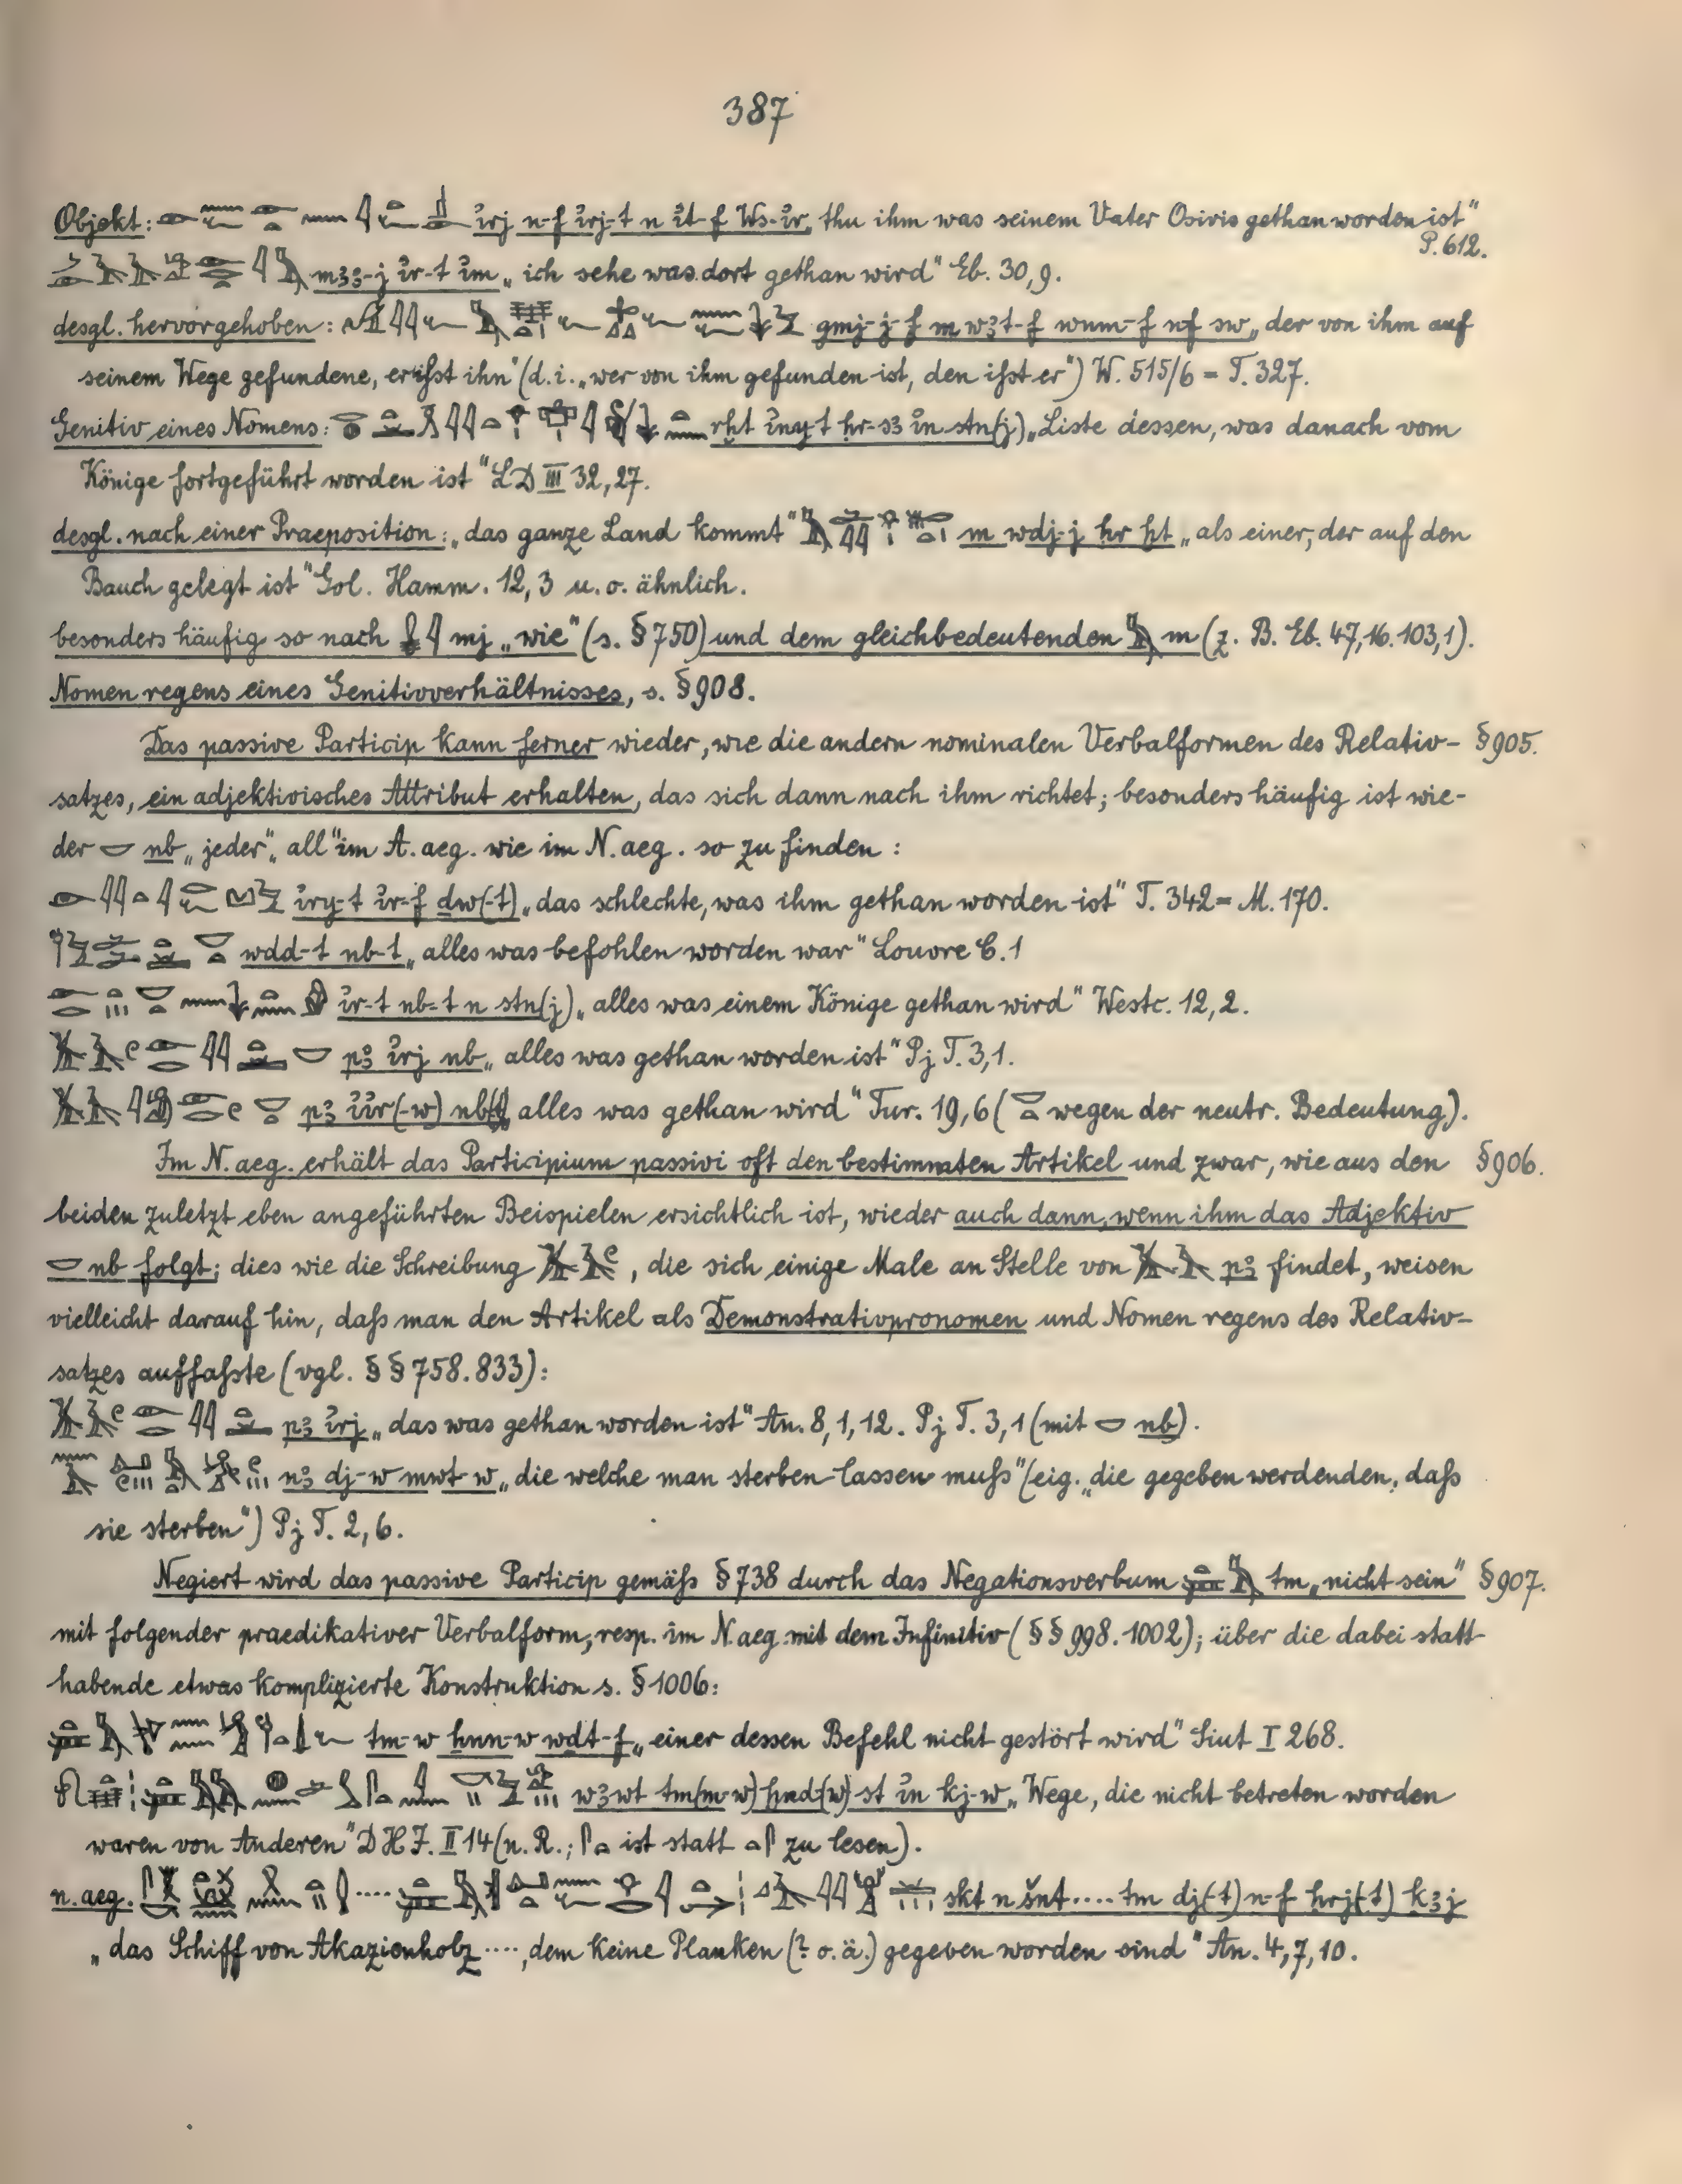 387
Objekt: ỉrj n-f ỉrj-t n ỉt-f Ws-ỉr „thu ihm was seinem Vater Osiris gethan worden ist“
P. 612.
mꜣꜣ-j ỉr-t ỉm „ich sehe was dort gethan wird“ Eb. 30,9.
desgl. hervorgehoben: gmj-j-f m wꜣt-f wnm-f nf sw „der von ihm auf
seinem Wege gefundene, er ißt ihn“ (d.i. „wer von ihm gefunden ist, den ißt er“) W. 515/6 = T. 327.
Genitiv eines Nomens: rḫt ỉny-t ḥr-sꜣ ỉn stn(j) „Liste dessen, was danach vom
Könige fortgeführt worden ist“ LD III 32,27.
desgl. nach einer Praeposition: „das ganze Land kommt“ m wdj-j ḥr ẖt „als einer, der auf den
Bauch gelegt ist“ Gol. Hamm. 12,3 u. o. ähnlich.
besonders häufig so nach mj „wie“ (s. §750) und dem gleichbedeutenden m (z. B. Eb. 47,16. 103,1).
Nomen regens eines Genitivverhältnisses, s. §908.
Das passive Particip kann ferner wieder, wie die andern nominalen Verbalformen des Relativ- §905.
satzes, ein adjektivisches Attribut erhalten, das sich dann nach ihm richtet; besonders häufig ist wie-
der nb „jeder“ „all“ im A. aeg. wie im N. aeg. so zu finden:
ỉry-t ỉr-f ḏw(-t) „das schlechte, was ihm gethan worden ist“ T. 342 = M. 170.
wdd-t nb-t „alles was befohlen worden war“ Louvre C. 1
ỉr-t nb-t n stn(j) „alles was einem Könige gethan wird“ Westc. 12,2.
pꜣ ỉrj nb „alles was gethan worden ist“ Pj T. 3,1.
pꜣ ỉỉr(-w) nb(t) „alles was gethan wird“ Tur. 19,6 ( wegen der neutr. Bedeutung).
Im N. aeg. erhält das Participium passivi oft den bestimmten Artikel und zwar, wie aus den §906.
beiden zuletzt eben angeführten Beispielen ersichtlich ist, wieder auch dann, wenn ihm das Adjektiv
nb folgt; dies wie die Schreibung , die sich einige Male an Stelle von pꜣ findet, weisen
vielleicht darauf hin, daß man den Artikel als Demonstrativpronomen und Nomen regens des Relativ-
satzes auffaßte (vgl. §§758.833):
pꜣ ỉrj „das was gethan worden ist“ An. 8,1,12. Pj T. 3,1 (mit nb).
nꜣ dj-w mwt-w „die welche man sterben lassen muß“ (eig. „die gegeben werdenden, daß
sie sterben“) Pj T. 2,6.
Negiert wird das passive Particip gemäß §738 durch das Negationsverbum tm „nicht sein“ §907.
mit folgender praedikativer Verbalform, resp. im N. aeg. mit dem Infinitiv (§§998.1002); über die dabei statt-
habende etwas komplizierte Konstruktion s. §1006:
tm-w ẖnn-w wdt-f „einer dessen Befehl nicht gestört wird“ Siut I 268.
wꜣwt tm(m-w) ḫnd(w) st ỉn kj-w „Wege, die nicht betreten worden
waren von Anderen“ DHJ. II 14 (n. R.; ist statt zu lesen).
n. aeg. skt n šnt .... tm dj(-t) n-f hrj(-t) kꜣj
„das Schiff von Akazienholz ...., dem keine Planken (? o. ä.) gegeben worden sind“ An. 4,7,10.